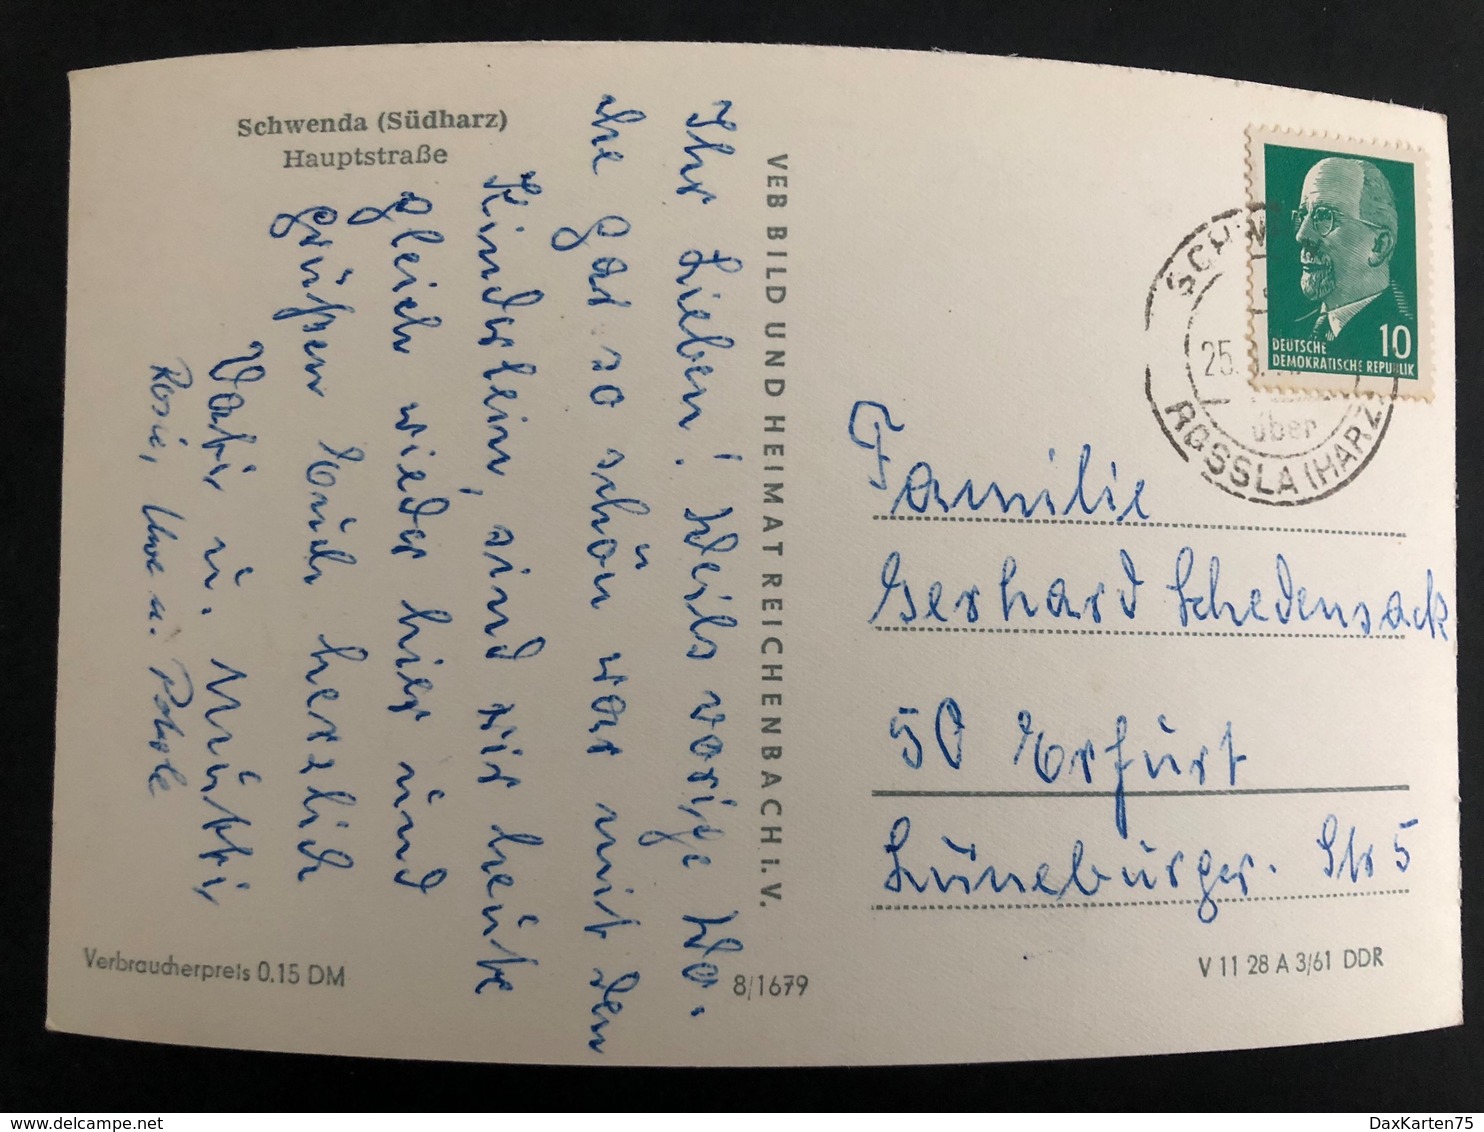 Schwenda (Südharz)
Hauptstraße
Ihr Lieben! Weils vorige Wo-
che gar so schön war mit den
Kinderlein, sind wir heute
gleich wieder hier und
grüßen Euch herzlich
Vati u. Mutti
Rosi, Uwe u.
VEB BILD UND HEIMAT REICHENBACH i. V.
Verbraucherpreis 0.15 DM
8/1679
10
DEUTSCHE
DEMOKRATISCHE REPUBLIK
25.
über
ROSSLA (HARZ)
Familie
Gerhard Schedensack
50 Erfurt
Lüneburger. Str 5
V 11 28 A 3/61 DDR
DaxKarten75